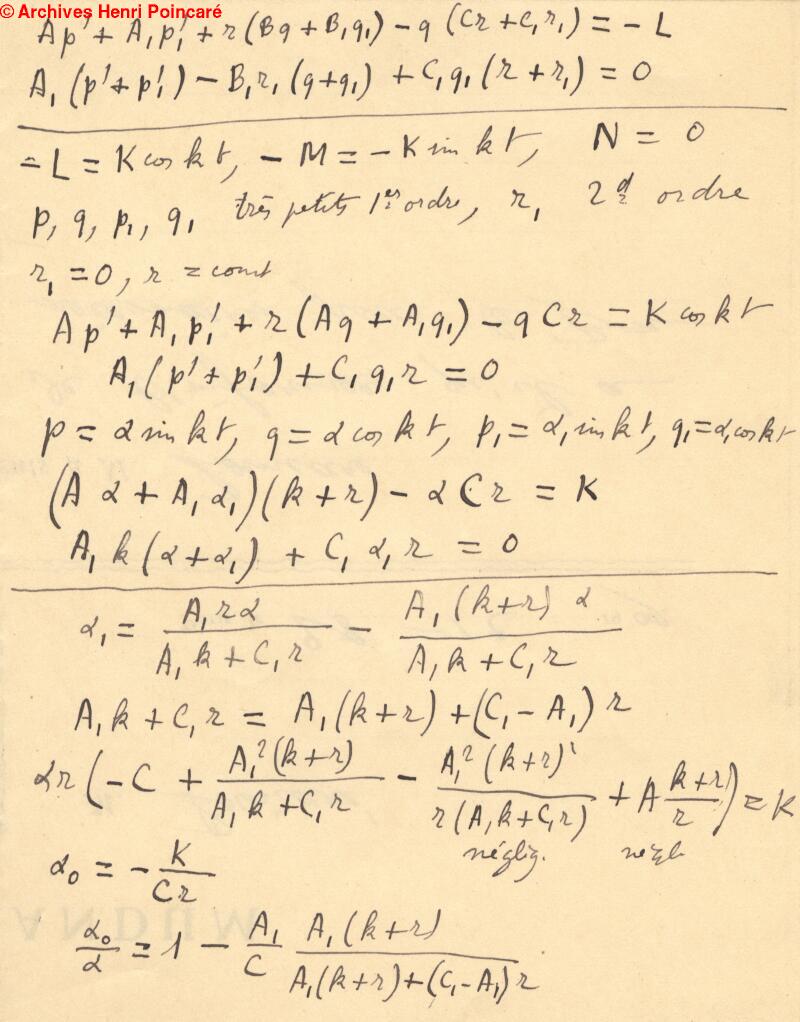 © Archives Henri Poincaré
Ap' + A₁p₁' + r(Bq + B₁q₁) − q(Cr + C₁r₁) = − L
A₁(p' + p₁') − B₁r₁(q + q₁) + C₁q₁(r + r₁) = 0
− L = K cos kt, − M = − K sin kt, N = 0
p, q, p₁, q₁ très petits 1er ordre, r₁ 2d ordre
r₁ = 0, r = const
Ap' + A₁p₁' + r(Aq + A₁q₁) − qCr = K cos kt
A₁(p' + p₁') + C₁q₁r = 0
p = α sin kt, q = α cos kt, p₁ = α₁ sin kt, q₁ = α₁ cos kt
(Aα + A₁α₁)(k + r) − αCr = K
A₁k(α + α₁) + C₁α₁r = 0
α₁ = A₁rα / (A₁k + C₁r) − A₁(k + r)α / (A₁k + C₁r)
A₁k + C₁r = A₁(k + r) + (C₁ − A₁)r
αr(− C + A₁²(k + r) / (A₁k + C₁r) − A₁²(k + r)² / r(A₁k + C₁r) + A (k + r) / r) = K
néglig. négl
α₀ = − K / Cr
α₀ / α = 1 − A₁ / C A₁(k + r) / (A₁(k + r) + (C₁ − A₁)r)